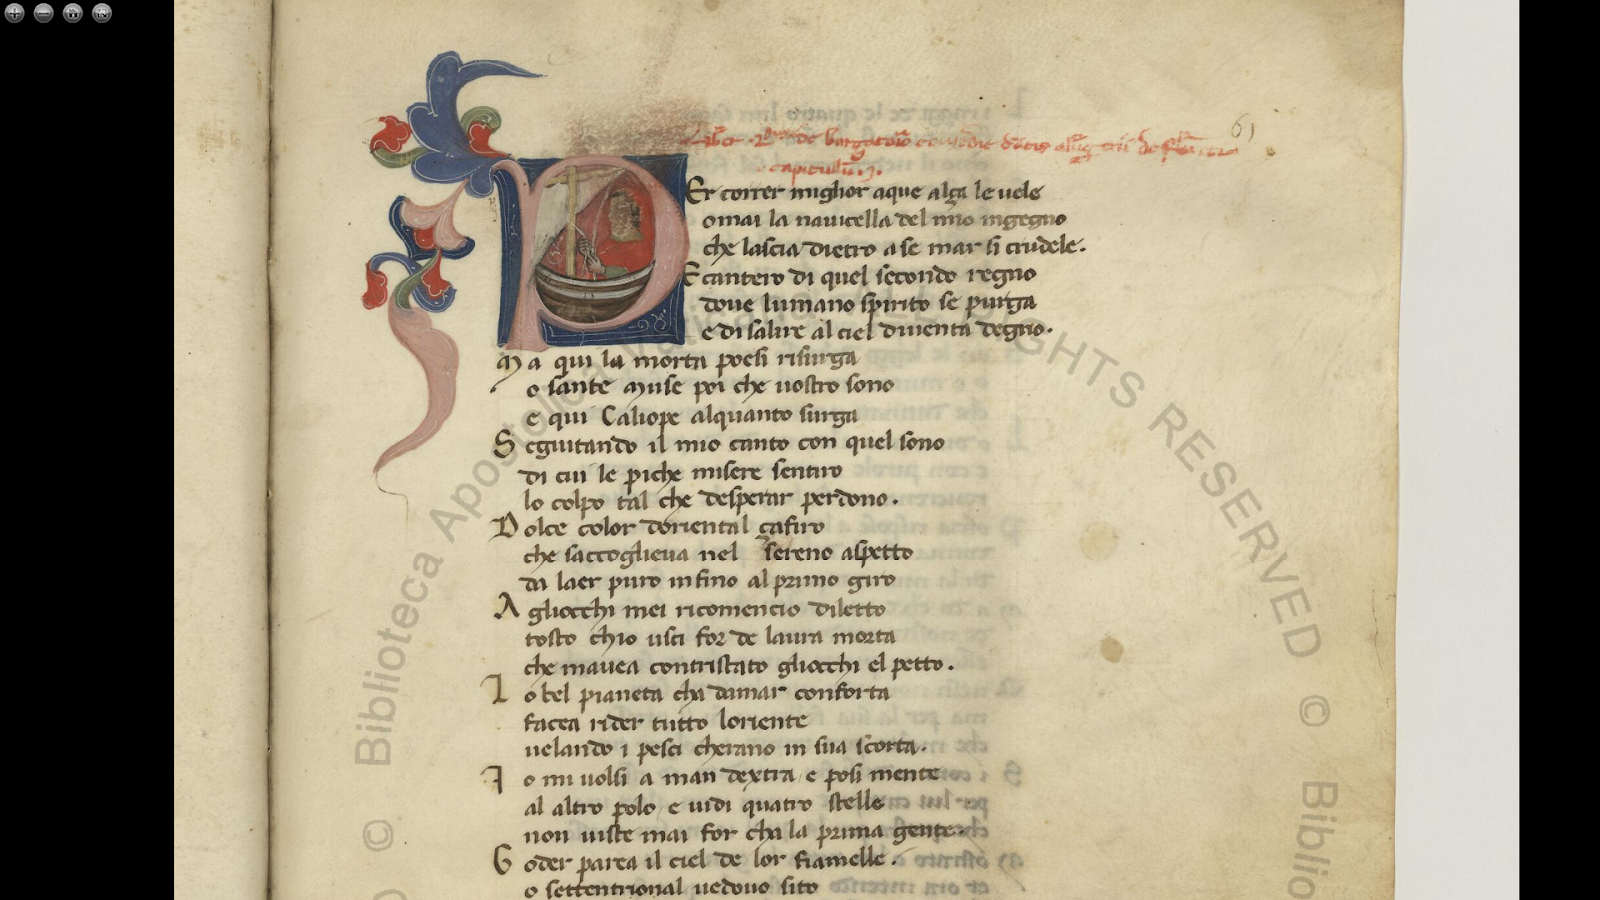 61
Liber
capitulum
PEr correr miglior aque alça le uele
omai la nauicella del mio ingegno
che lascia dietro a se mar si crudele.
E cantero di quel secondo regno
doue lumano spirito se purga
e di salire al ciel diuenta degno.
Ma qui la morta poesi risurga
o sante Muse poi che uostro sono
e qui Caliope alquanto surga
Seguitando il mio canto con quel sono
di cui le piche misere sentiro
lo colpo tal che desperar perdono.
Dolce color doriental çafiro
che saccoglieua nel sereno aspetto
da laer puro infino al primo giro
A gliocchi mei ricomencio diletto
tosto chio usci for de laura morta
che mauea contristato gliocchi el petto.
Lo bel pianeta cha damar conforta
facea rider tutto loriente
uelando i pesci cherano in sua scorta.
Io mi uolsi a man dextra e posi mente
al altro polo e uidi quatro stelle
non uiste mai for cha la prima gente.
Goder parea il ciel de lor fiamelle.
o settentrional uedouo sito
© Biblioteca Apostolica Vaticana ALL RIGHTS RESERVED ©
© Biblio